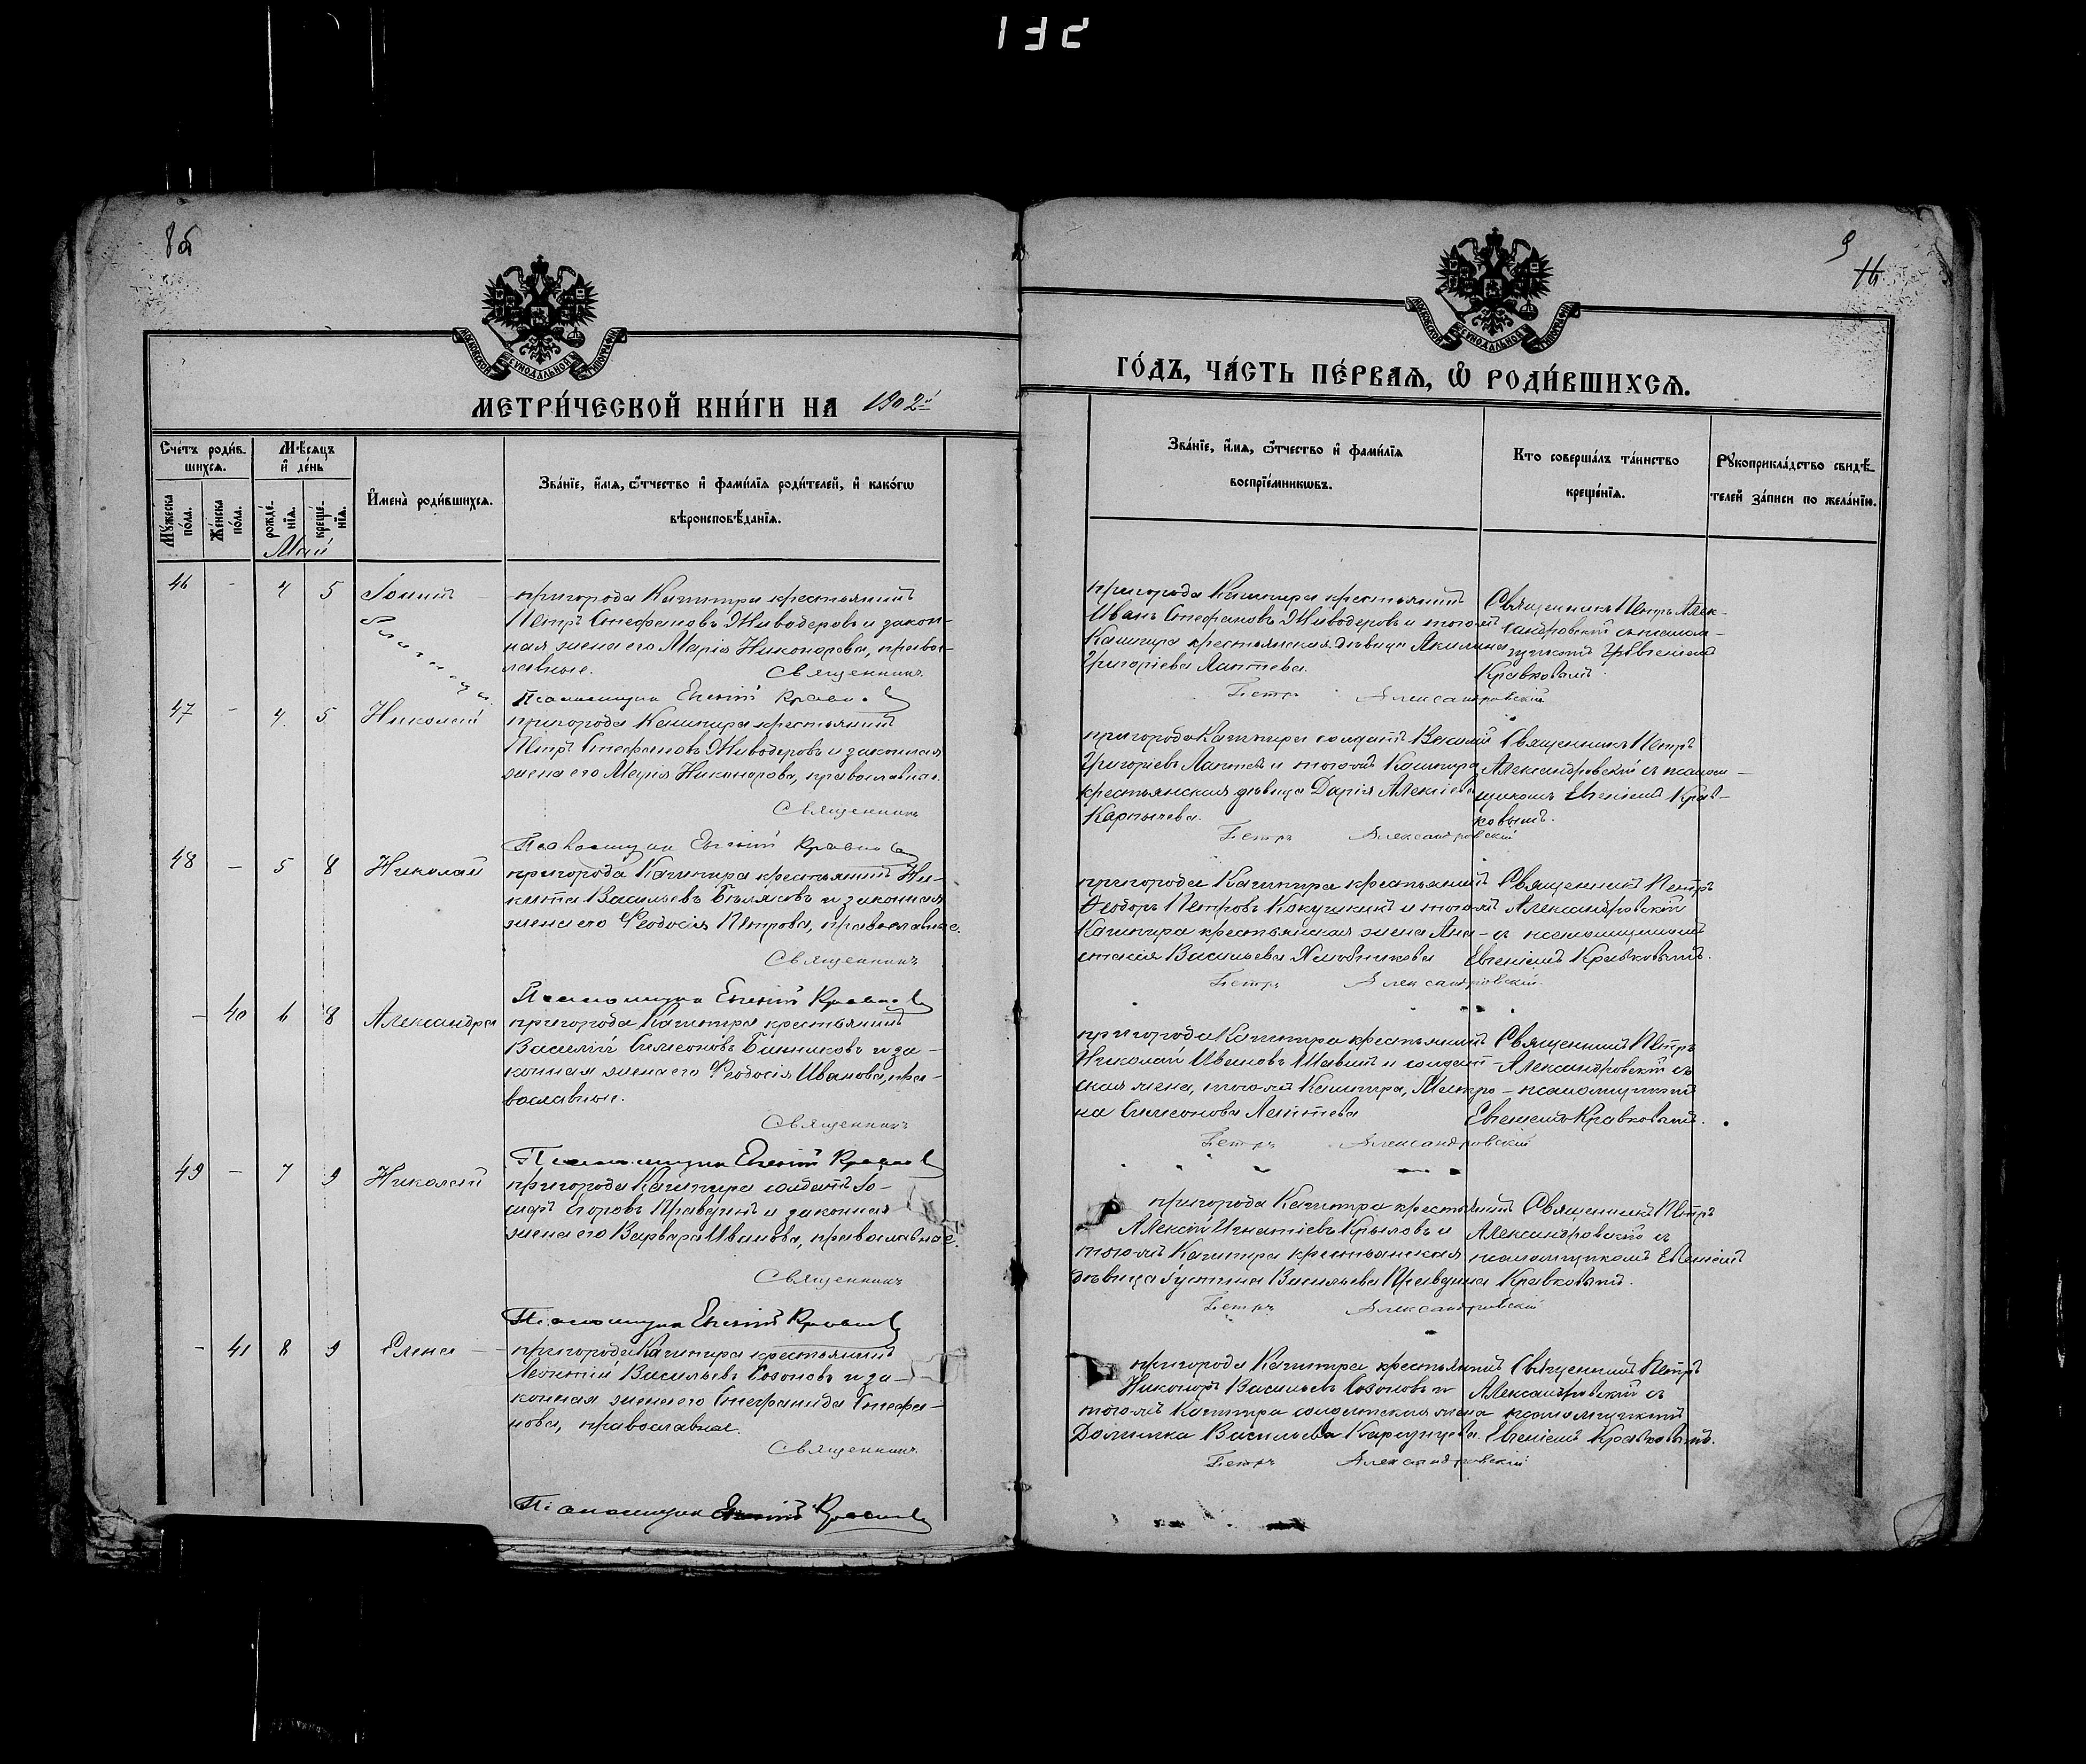 132
85
МЕТРИ́ЧЕСКОЙ КНИ́ГИ НА 1902й
Сче́тъ роди́в-
шихся.
Мѣ́сяцъ
и҆ де́нь
Мꙋ́жеска по́ла.
Же́нска по́ла.
рожде́-
нїя.
креще́-
нїя.
И҆мена̀ роди́вшихся.
Зва́нїе, и҆́мя, ѻ҆́тчество и҆ фами́лїя роди́телей, и҆ како́гѡ
вѣроисповѣ́данїя.
Май
46 - 4 5 Іоиль
близнецы
пригорода Кашпира крестьянинъ
Петръ Стефановъ Живодеровъ и закон-
ная жена его Марія Никонорова, правос-
лавные.
Священникъ
Псаломщикъ Евгеній Кравковъ
47 - 4 5 Николай
пригорода Кашпира крестьянинъ
Петръ Стефановъ Живодеровъ и законная
жена его Марія Никонорова, православные.
Священникъ
Псаломщикъ Евгеній Кравковъ
48 - 5 8 Николай
пригорода Кашпира крестьянинъ Ни-
кита Васильевъ Бѣляковъ и законная
жена его Феодосія Петрова, православные.
Священникъ
Псаломщикъ Евгеній Кравковъ
- 40 6 8 Александра
пригорода Кашпира крестьянинъ
Василій Симеоновъ Банниковъ и за-
конная жена его Феодосія Иванова, пра-
вославные.
Священникъ
Псаломщикъ Евгеній Кравковъ
49 - 7 9 Николай
пригорода Кашпира солдатъ Іо-
сифъ Егоровъ Праведновъ и законная
жена его Варвара Иванова, православные.
Священникъ
Псаломщикъ Евгеній Кравковъ
- 41 8 9 Елена
пригорода Кашпира крестьянинъ
Леонтій Васильевъ Созоновъ и за-
конная жена его Стефанида Стефа-
нова, православные.
Священникъ
Псаломщикъ Евгеній Кравковъ
9
16
ГО́ДЪ, ЧА́СТЬ ПЕ́РВАЯ, Ѽ РОДИ́ВШИХСЯ.
Зва́нїе, и҆́мя, ѻ҆́тчество и҆ фами́лїя
воспрїе́мникѡвъ.
Кто соверша́лъ та́инство
креще́нїя.
Рꙋкоприкла́дство свидѣ́-
телей за́писи по жела́нїю.
пригорода Кашпира крестьянинъ
Иванъ Стефановъ Живодеровъ и тогожъ
Кашпира крестьянская дѣвица Акилина
Григоріева Лаптева.
Священникъ Петръ Алек-
сандровскій съ псалом-
щикомъ Евгеніемъ
Кравковымъ.
Петръ Александровскій
пригорода Кашпира солдатъ Василій
Григорьевъ Лаптевъ и тогожъ Кашпира
крестьянская дѣвица Дарія Алексѣева
Карпычева.
Священникъ Петръ
Александровскій съ псалом-
щикомъ Евгеніемъ Крав-
ковымъ.
Петръ Александровскій
пригорода Кашпира крестьянинъ
Ѳеодоръ Петровъ Кокушкинъ и тогожъ
Кашпира крестьянская жена Ана-
стасія Васильева Хлюбникова
Священникъ Петръ
Александровскій
съ псаломщикомъ
Евгеніемъ Кравковымъ.
Петръ Александровскій
пригорода Кашпира крестьянинъ
Николай Ивановъ Шавинъ и солдат-
ская жена, тогожъ Кашпира, Матро-
на Симеонова Лаптева
Священникъ Петръ
Александровскій съ
псаломщикомъ
Евгеніемъ Кравковымъ.
Петръ Александровскій
пригорода Кашпира крестьянинъ
Алексѣй Игнатіевъ Крыловъ и
тогожъ Кашпира крестьянская
дѣвица Іустина Васильева Праведнова
Священникъ Петръ
Александровскій съ
псаломщикомъ Евгеніемъ
Кравковымъ.
Петръ Александровскій
пригорода Кашпира крестьянинъ
Никоноръ Васильевъ Созоновъ и
тогожъ Кашпира солдатская жена
Домника Васильева
Священникъ Петръ
Александровскій съ
псаломщикомъ
Евгеніемъ Кравковымъ.
Петръ Александровскій